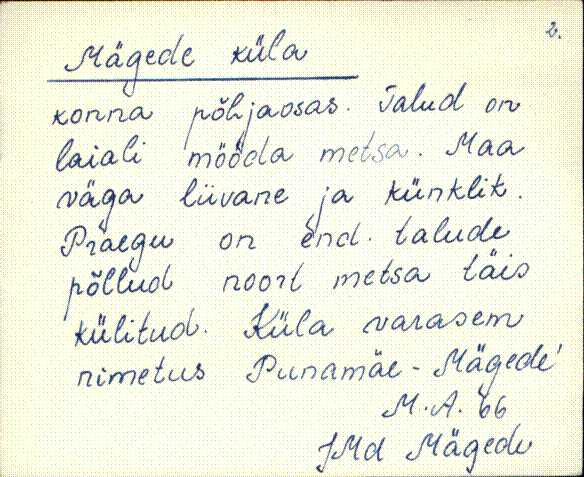 2.
Mägede küla
konna põhjaosas. Talud on
laiali mööda metsa. Maa
väga liivane ja künklik.
Praegu on end. talude
põllud noort metsa täis
külitud. Küla varasem
nimetus Punamäe - Mägede'
M.A. '66
JMd Mägede